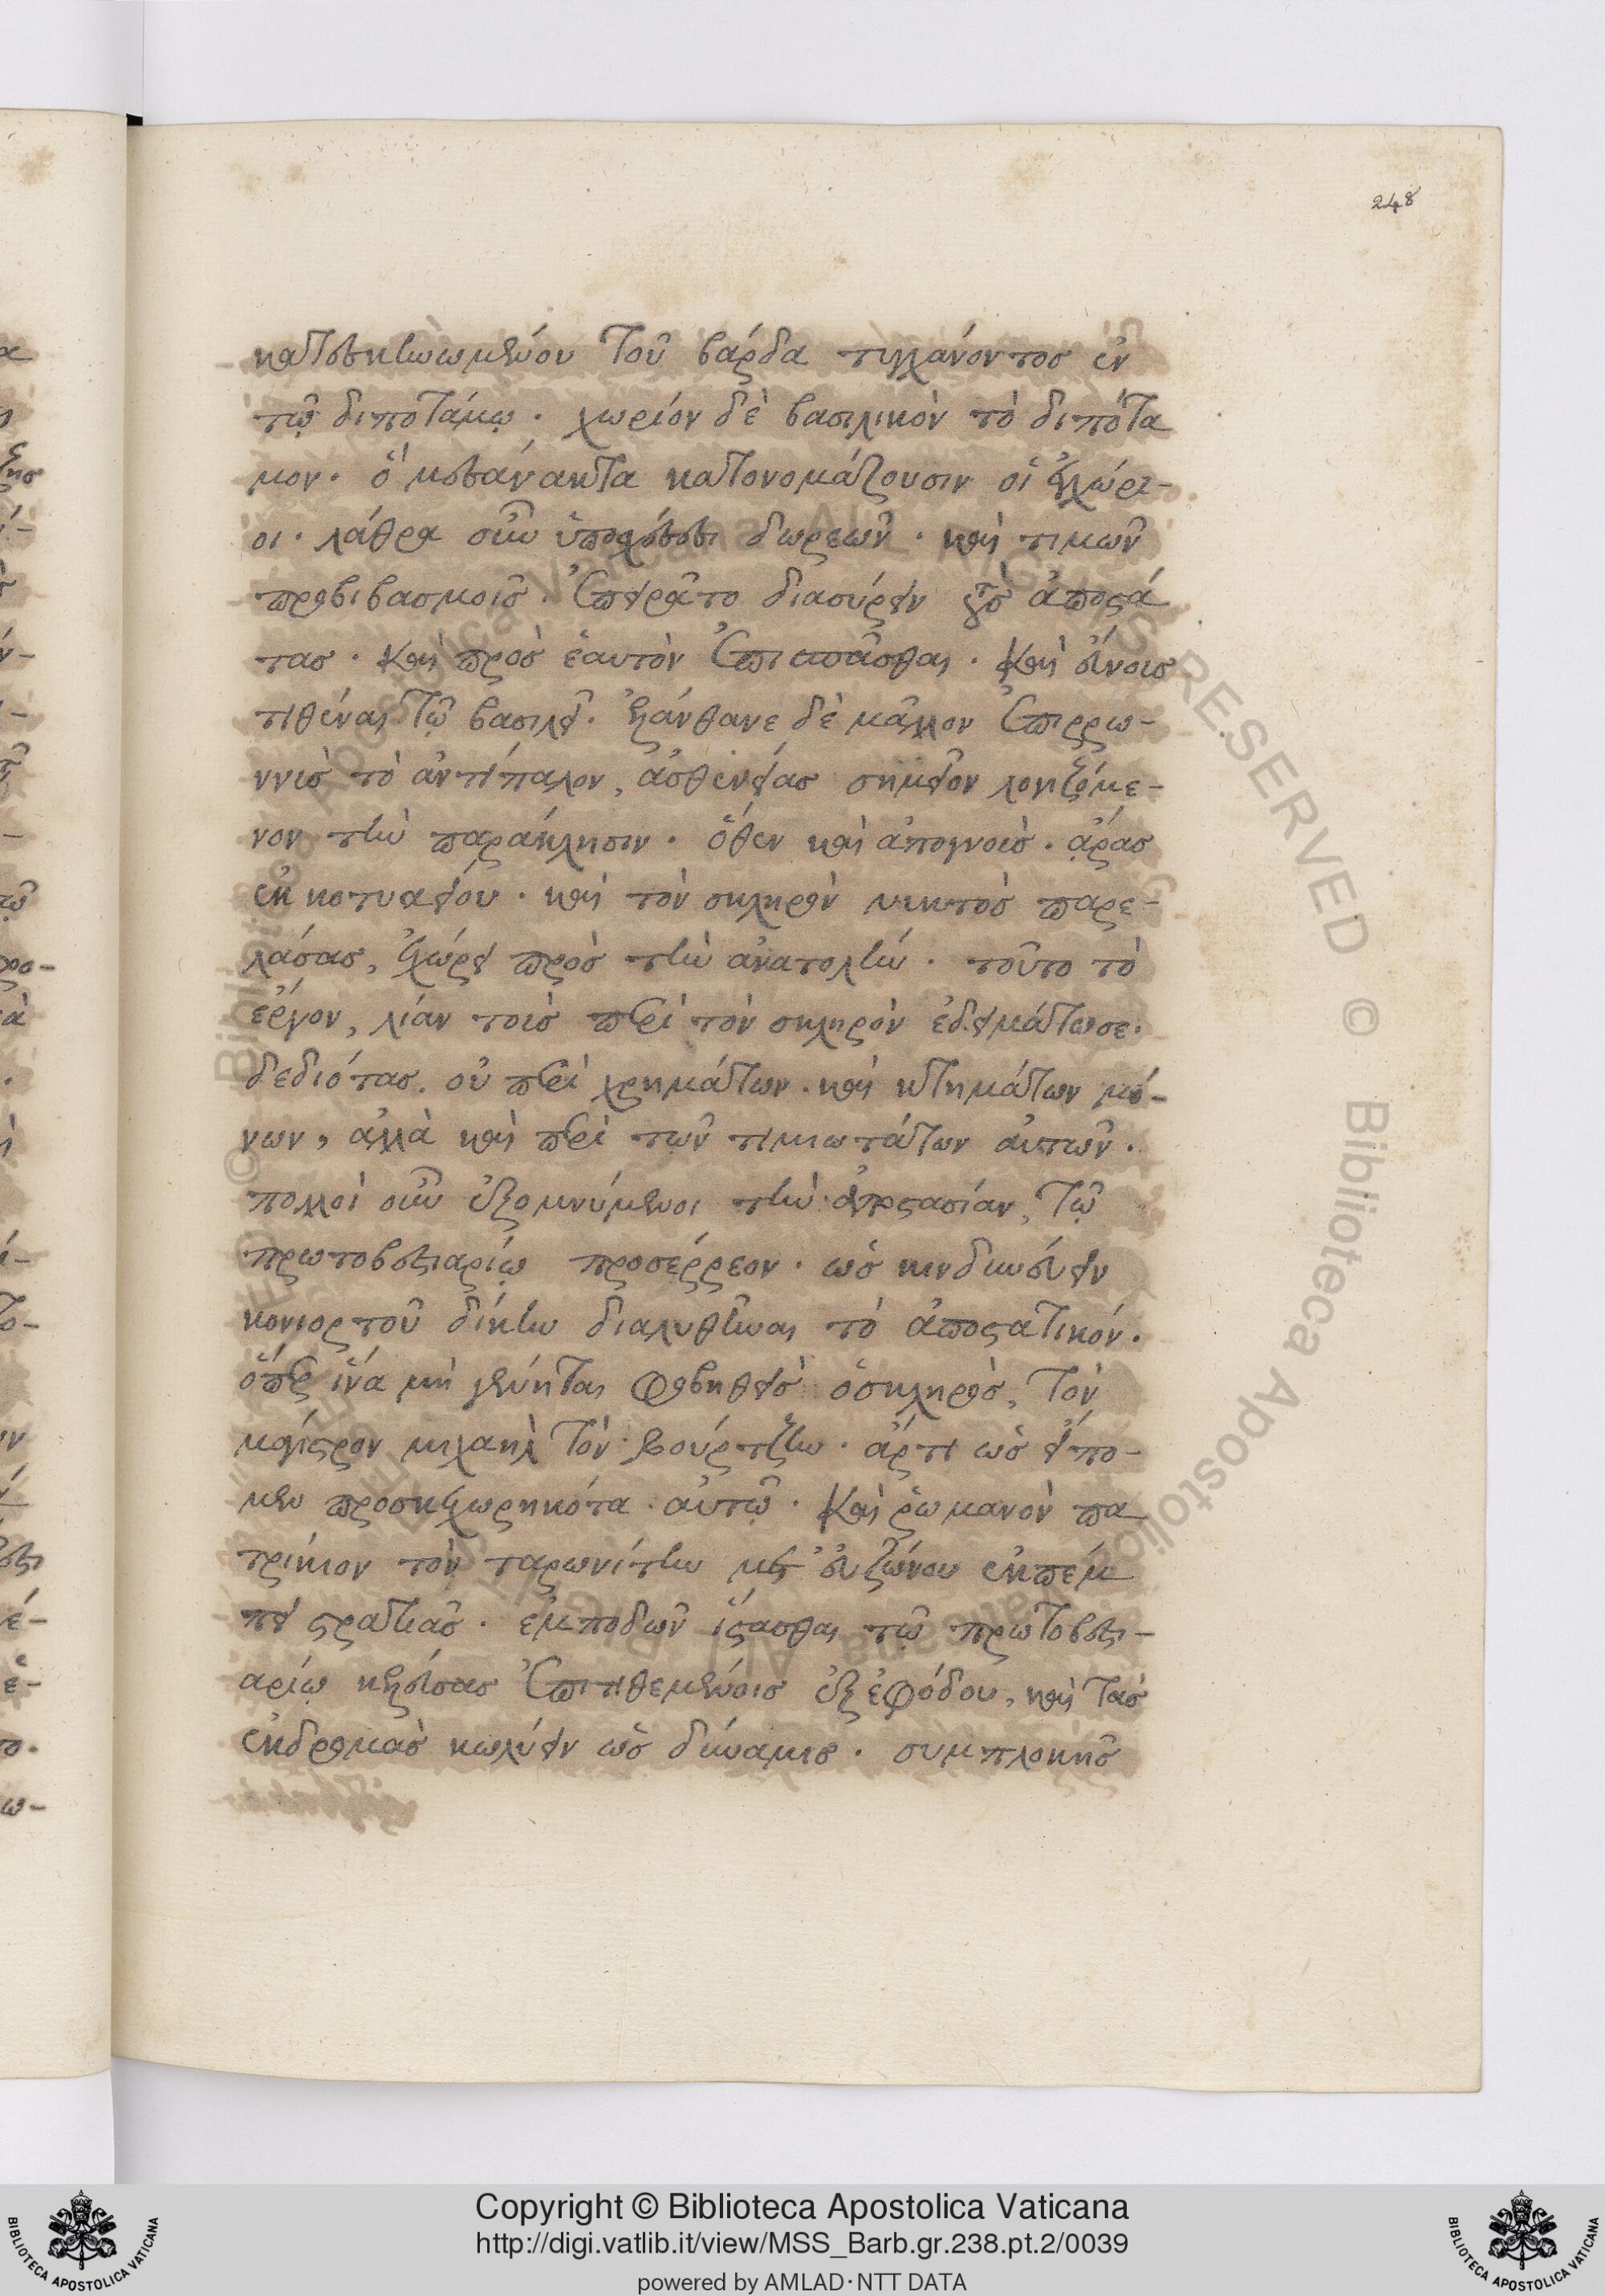 248
κατεσκηνωμένου τοῦ βάρδα τυγχάνοντος ἐν
τῷ διποτάμῳ. χωρίον δὲ βασιλικὸν τὸ διπότα
μον. ὃ μεσάνακτα κατονομάζουσιν οἱ ἐγχώρι-
οι. λάθρα οὖν ὑποσχέσεσι δωρεῶν. καὶ τιμῶν
προβιβασμοῖς. ἐπειρᾶτο διασύρειν τοὺς ἀποστά
τας. καὶ πρὸς ἑαυτὸν ἐπισπᾶσθαι. καὶ εὔνοις
τιθέναι τῷ βασιλεῖ. ἐλάνθανε δὲ μᾶλλον ἐπιρρω-
ννὺς τὸ ἀντίπαλον, ἀσθενείας σημεῖον λογιζόμε-
νον τὴν παράκλησιν. ὅθεν καὶ ἀπογνοὺς. ἄρας
ἐκ κοτυαείου. καὶ τὸν σκληρὸν νυκτὸς παρε-
λάσας, ἐχώρει πρὸς τὴν ἀνατολήν. τοῦτο τὸ
ἔργον, λίαν τοὺς περὶ τὸν σκληρὸν ἐδειμάτωσε.
δεδιότας. οὐ περὶ χρημάτων. καὶ κτημάτων μό-
νων, ἀλλὰ καὶ περὶ τῶν τιμιωτάτων αὐτῶν.
πολλοὶ οὖν ἐξομνύμενοι τὴν ἀποστασίαν, τῷ
πρωτοβεστιαρίῳ προσέρρεον. ὡς κινδυνεύειν
κονιορτοῦ δίκην διαλυθῆναι τὸ ἀποστατικόν.
ὅπερ ἵνα μὴ γένηται φοβηθεὶς ὁ σκληρὸς, τὸν
μάγιστρον μιχαὴλ τὸν βούρτζην. ἄρτι ὡς εἴπο-
μεν προσκεχωρηκότα αὐτῷ. καὶ ῥωμανὸν πα
τρίκιον τὸν ταρωνίτην μετ' εὐζώνου ἐκπέμ
πει στρατιᾶς. ἐμποδὼν ἵστασθαι τῷ πρωτοβεστι-
αρίῳ κελεύσας ἐπιτιθεμένοις ἐξ ἐφόδου, καὶ τὰς
ἐκδρομὰς κωλύειν ὡς δύναμις. συμπλοκῆς
Copyright © Biblioteca Apostolica Vaticana
http://digi.vatlib.it/view/MSS_Barb.gr.238.pt.2/0039
powered by AMLAD·NTT DATA